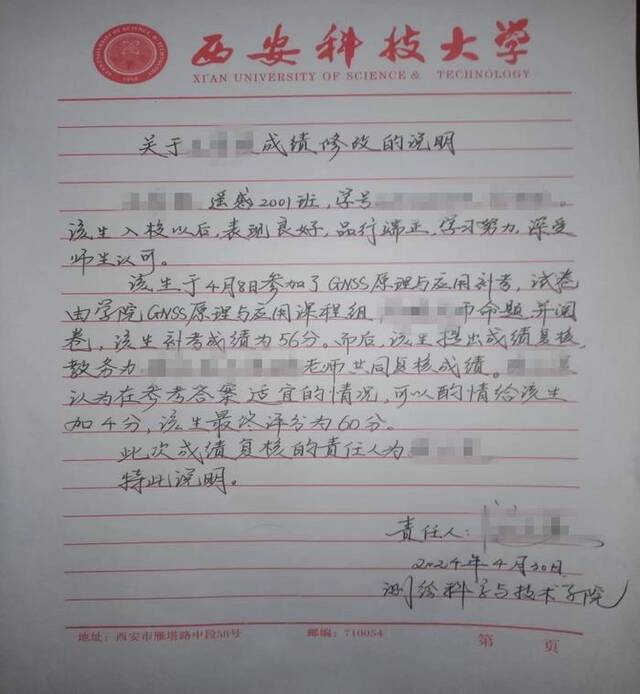 西安科技大学
XI'AN UNIVERSITY OF SCIENCE & TECHNOLOGY
关于 成绩修改的说明
遥感2001班,学号 。
该生入校以后,表现良好,品行端正,学习努力,深受
师生认可。
该生于4月8日参加了GNSS原理与应用补考,试卷
由学院GNSS原理与应用课程组 命题并阅
卷,该生补考成绩为56分。而后,该生提出成绩复核,
教务办 老师共同复核成绩。
认为在参考答案适宜的情况,可以酌情给该生
加4分,该生最终评分为60分。
此次成绩复核的责任人为 。
特此说明。
责任人:
2024年4月30日
测绘科学与技术学院
地址:西安市雁塔路中段58号 邮编:710054 第 页